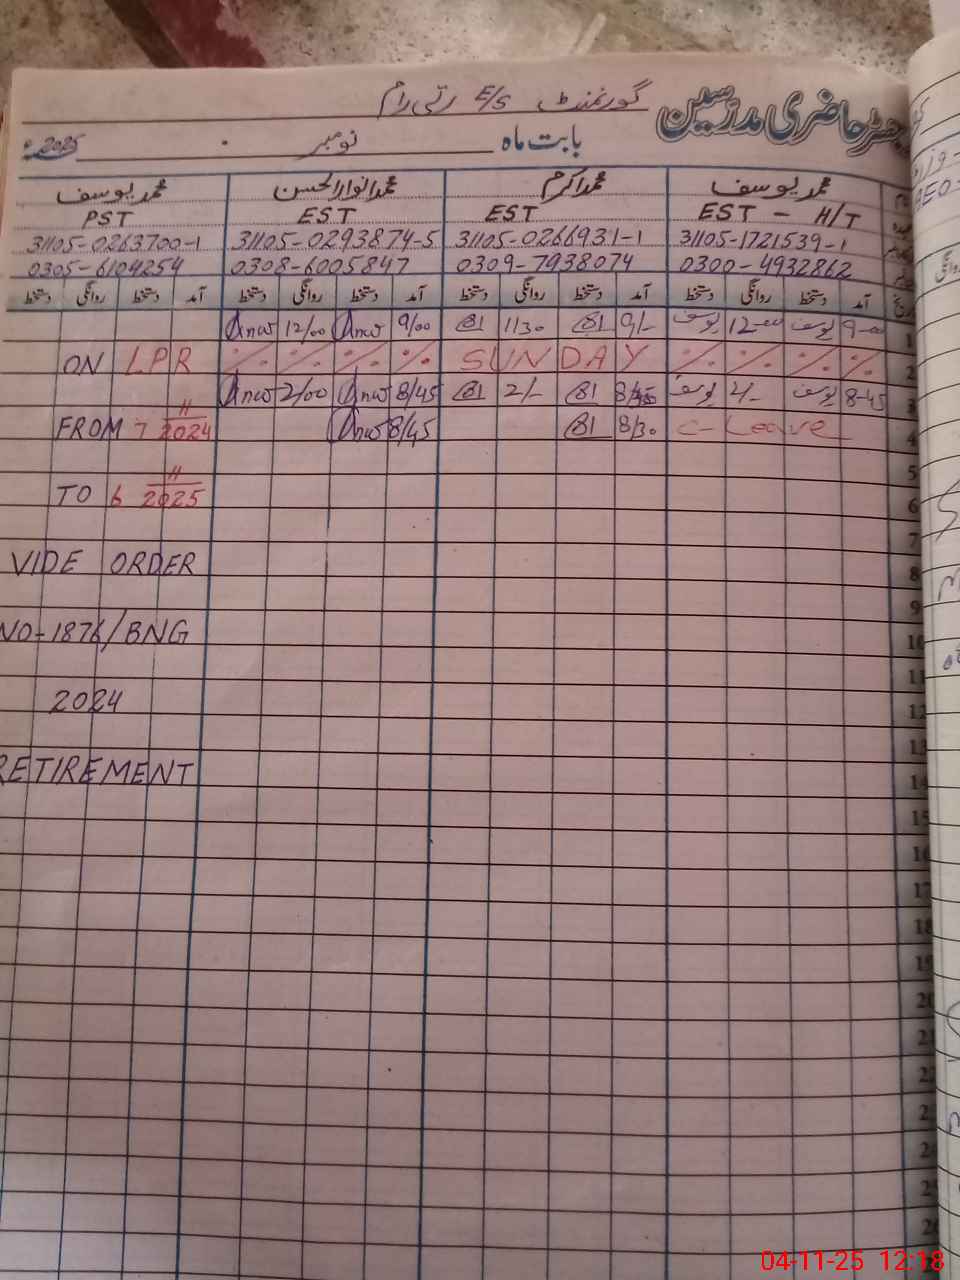 رجسٹر حاضری مدرسین گورنمنٹ E/S رتی رام
بابت ماہ نومبر 2025ء
محمد یوسف محمد اکرم محمد انوار الحسن محمد یوسف
EST - H/T EST EST PST
31105-1721539-1 31105-0266931-1 31105-0293874-5 31105-0263700-1
0300-4932862 0309-7938074 0308-6005847 0305-6104254
تاریخ آمد دستخط روانگی دستخط آمد دستخط روانگی دستخط آمد دستخط روانگی دستخط آمد دستخط روانگی دستخط
1 9-00 یوسف 12-00 یوسف 9/- 1130 9/00 Anw 12/00 Anw
2 ٪ ٪ ٪ ٪ SUNDAY ٪ ٪ ٪ ٪ ON LPR
3 8-45 یوسف 2/- یوسف 8/45 2/- 8/45 Anw 2/00 Anw
4 C-Leave 8/30 8/45 Anw FROM 7 11 2024
5
6 TO 6 11 2025
7
8 VIDE ORDER
9
10 NO-1876/BNG
11
12 2024
13
14 RETIREMENT
15
16
17
18
19
20
21
22
23
24
25
26
04-11-25 12:18